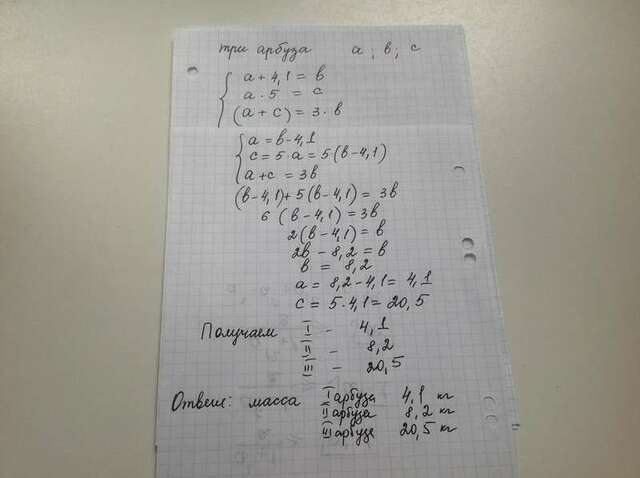 три арбуза а; в; с
а + 4,1 = в
а · 5 = с
(а + с) = 3 · в
а = в - 4,1
с = 5 а = 5 (в - 4,1)
а + с = 3в
(в - 4,1) + 5 (в - 4,1) = 3в
6 (в - 4,1) = 3в
2 (в - 4,1) = в
2в - 8,2 = в
в = 8,2
а = 8,2 - 4,1 = 4,1
с = 5 · 4,1 = 20,5
Получаем I - 4,1
II - 8,2
III - 20,5
Ответ: масса I арбуза 4,1 кг
II арбуза 8,2 кг
III арбуза 20,5 кг